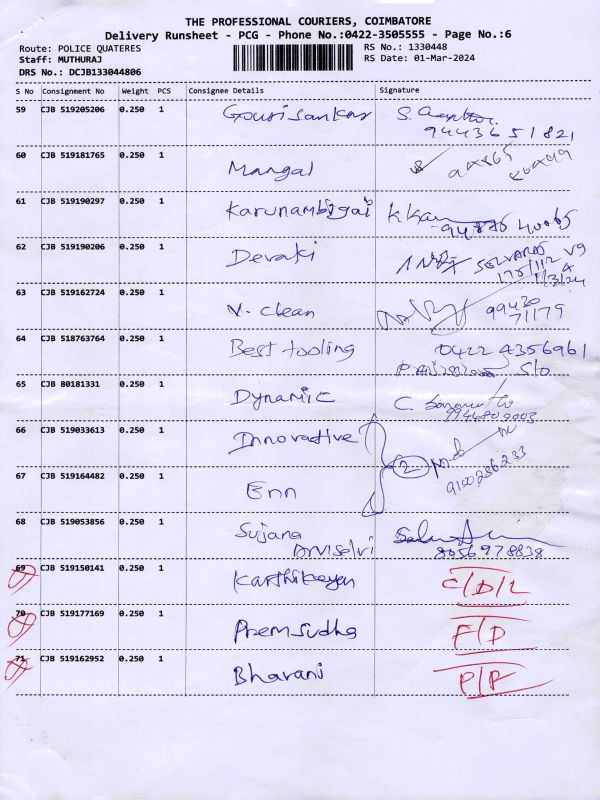 THE PROFESSIONAL COURIERS, COIMBATORE
Delivery Runsheet - PCG - Phone No.:0422-3505555 - Page No.:6
Route: POLICE QUATERES
RS No.: 1330448
Staff: MUTHURAJ
RS Date: 01-Mar-2024
DRS No.: DCJB133044806
S No Consignment No Weight PCS Consignee Details Signature
59 CJB 519205206 0.250 1 Gourisankar S.
9443651821
60 CJB 519181765 0.250 1 Mangal
61 CJB 519190297 0.250 1 Karunambigai
62 CJB 519190206 0.250 1 Devaki
175/112
1/3/24
63 CJB 519162724 0.250 1 V. clean 99430
71179
64 CJB 518763764 0.250 1 Best tooling 0422 4356961
S/o
65 CJB 80181331 0.250 1 Dynamic C.
66 CJB 519033613 0.250 1 Innovative
2
67 CJB 519164482 0.250 1 Enn 9100286233
68 CJB 519053856 0.250 1 Sujana
8056978838
69 CJB 519150141 0.250 1 Karthikeyan C/D/L
70 CJB 519177169 0.250 1 Premsudha F/D
71 CJB 519162952 0.250 1 Bharani P/P